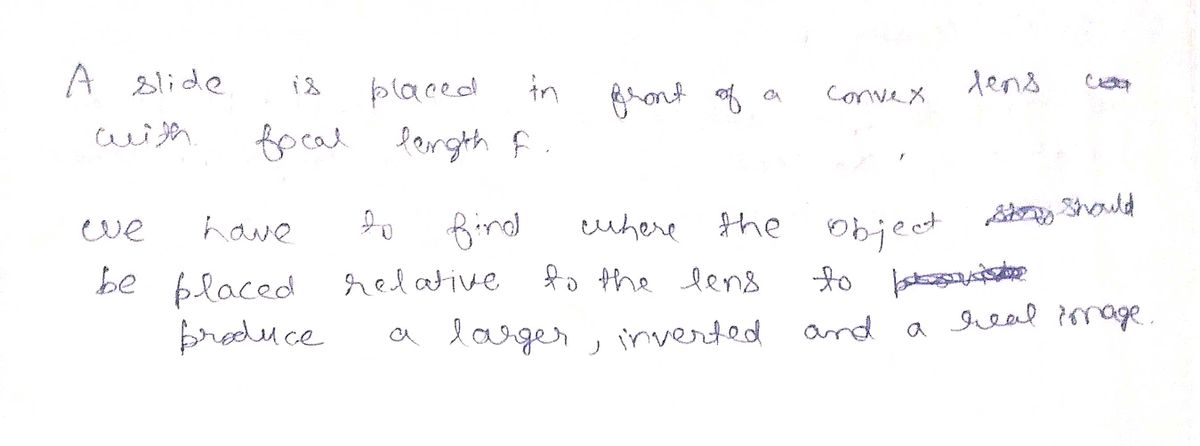 A slide is placed in front of a convex lens
with focal length f.
we have to find where the object should
be placed relative to the lens to
produce a larger, inverted and a real image.